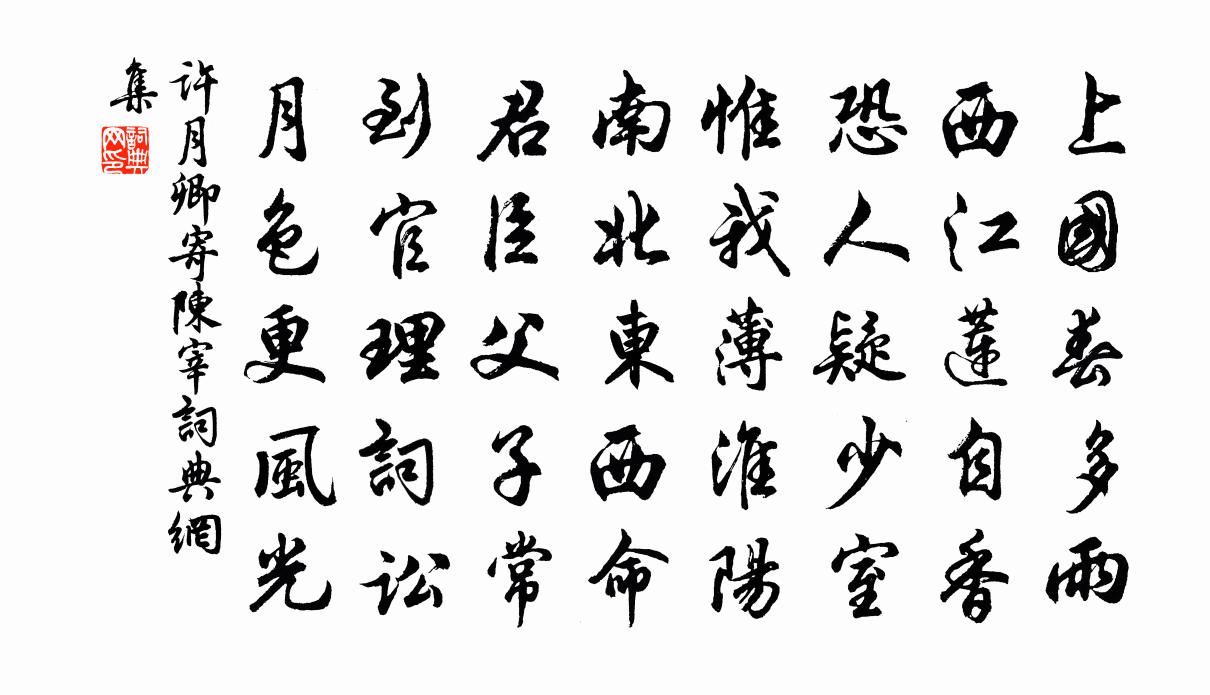 上國春多雨
西江蓮自香
恐人疑少室
惟我薄淮陽
南北東西命
君臣父子常
到官理詞訟
月色更風光
許月卿寄陳宰詞典網
集
詞典
网印